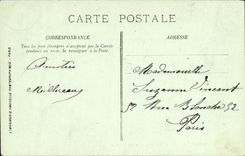 CARTE POSTALE
CORRESPONDANCE
Tous les pays étrangers n'acceptent pas la Corres-
pondance au verso, se renseigner à la Poste.
ADRESSE
Amitiés
Mademoiselle
Suzanne Vincent
52 Rue Blanche 52
Paris